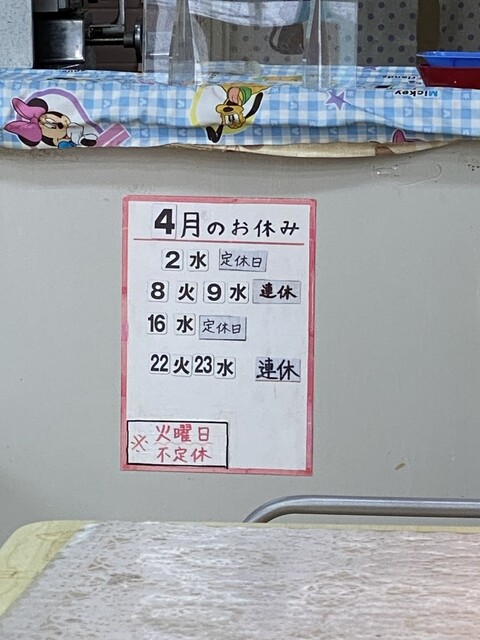 Mickey
4月のお休み
2水 定休日
8火9水 連休
16水 定休日
22火23水 連休
※火曜日
不定休